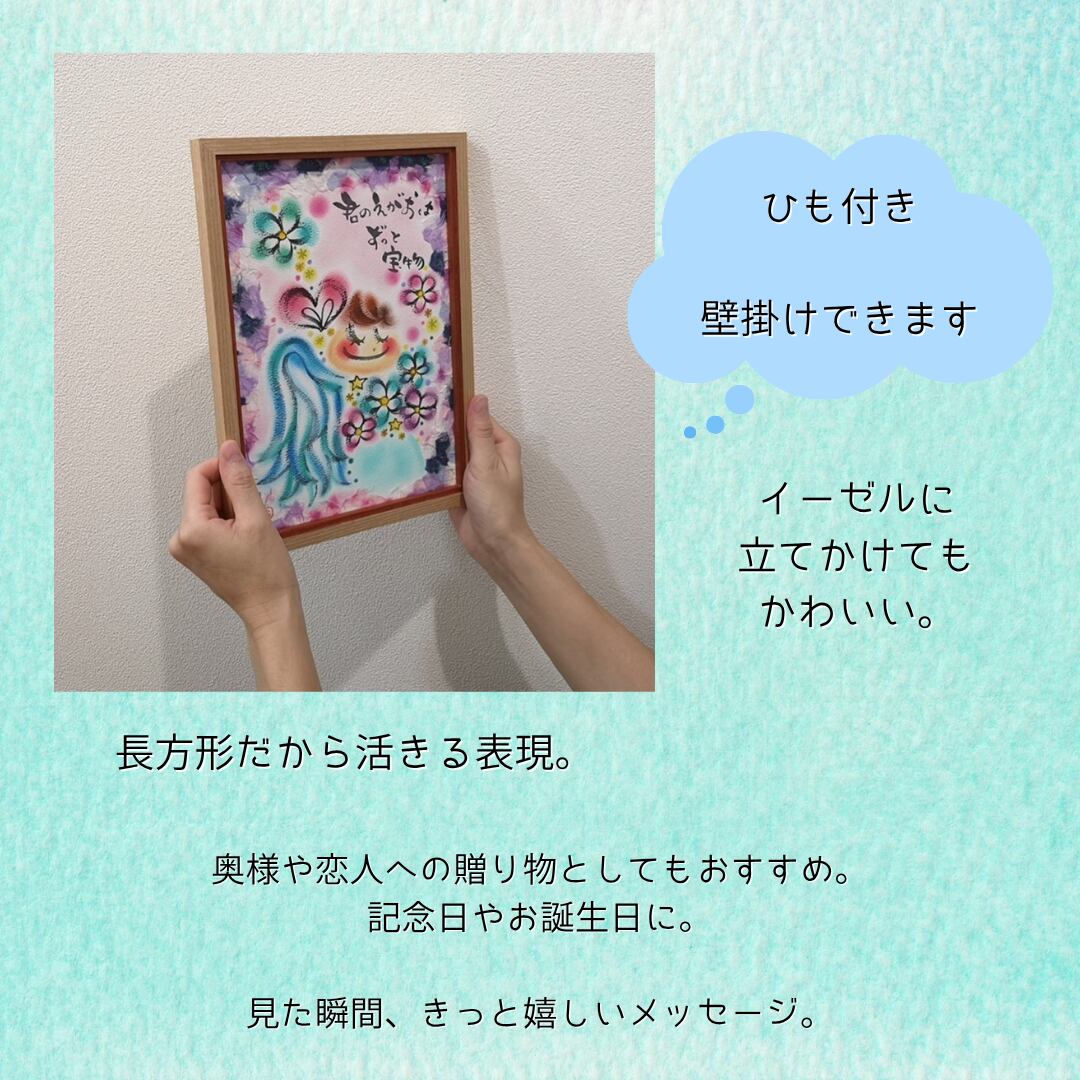 君のえがおは
ずっと
宝物
ひも付き
壁掛けできます
イーゼルに
立てかけても
かわいい。
長方形だから活きる表現。
奥様や恋人への贈り物としてもおすすめ。
記念日やお誕生日に。
見た瞬間、きっと嬉しいメッセージ。